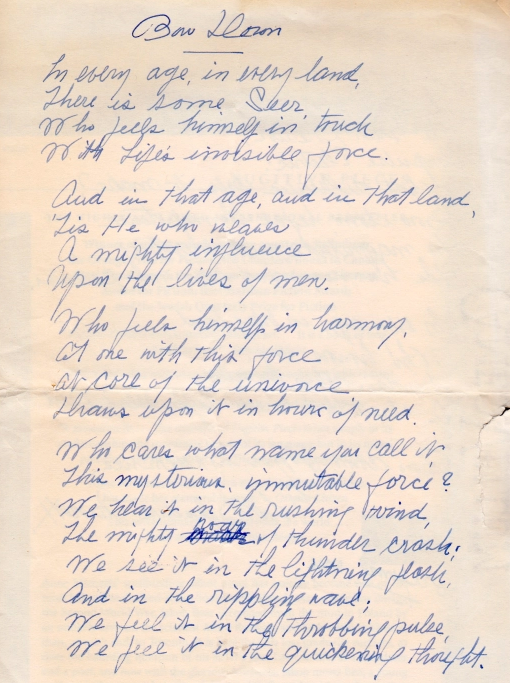 Bow Down
In every age, in every land,
There is some Seer
Who feels himself in touch
With Life's invisible force.
And in that age, and in that land,
'Tis He who weaves
A mighty influence
Upon the lives of men.
Who feels himself in harmony,
At one with this force
At core of the universe
Draws upon it in hours of need.
Who cares what name you call it
This mysterious, immutable force?
We hear it in the rushing wind,
The mighty roar of thunder crash;
We see it in the lightning flash,
And in the rippling wave;
We feel it in the throbbing pulse,
We feel it in the quickening thought.